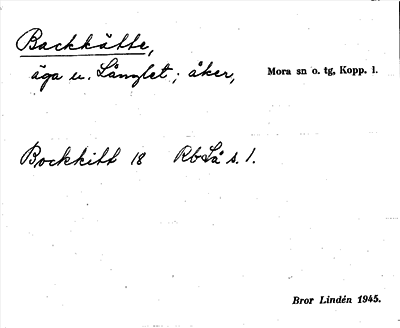 Backkätte,
äga u. Långlet; åker, Mora sn o. tg, Kopp. l.
Bockkitt 18 Rb Lå s. 1.
Bror Lindén 1945.